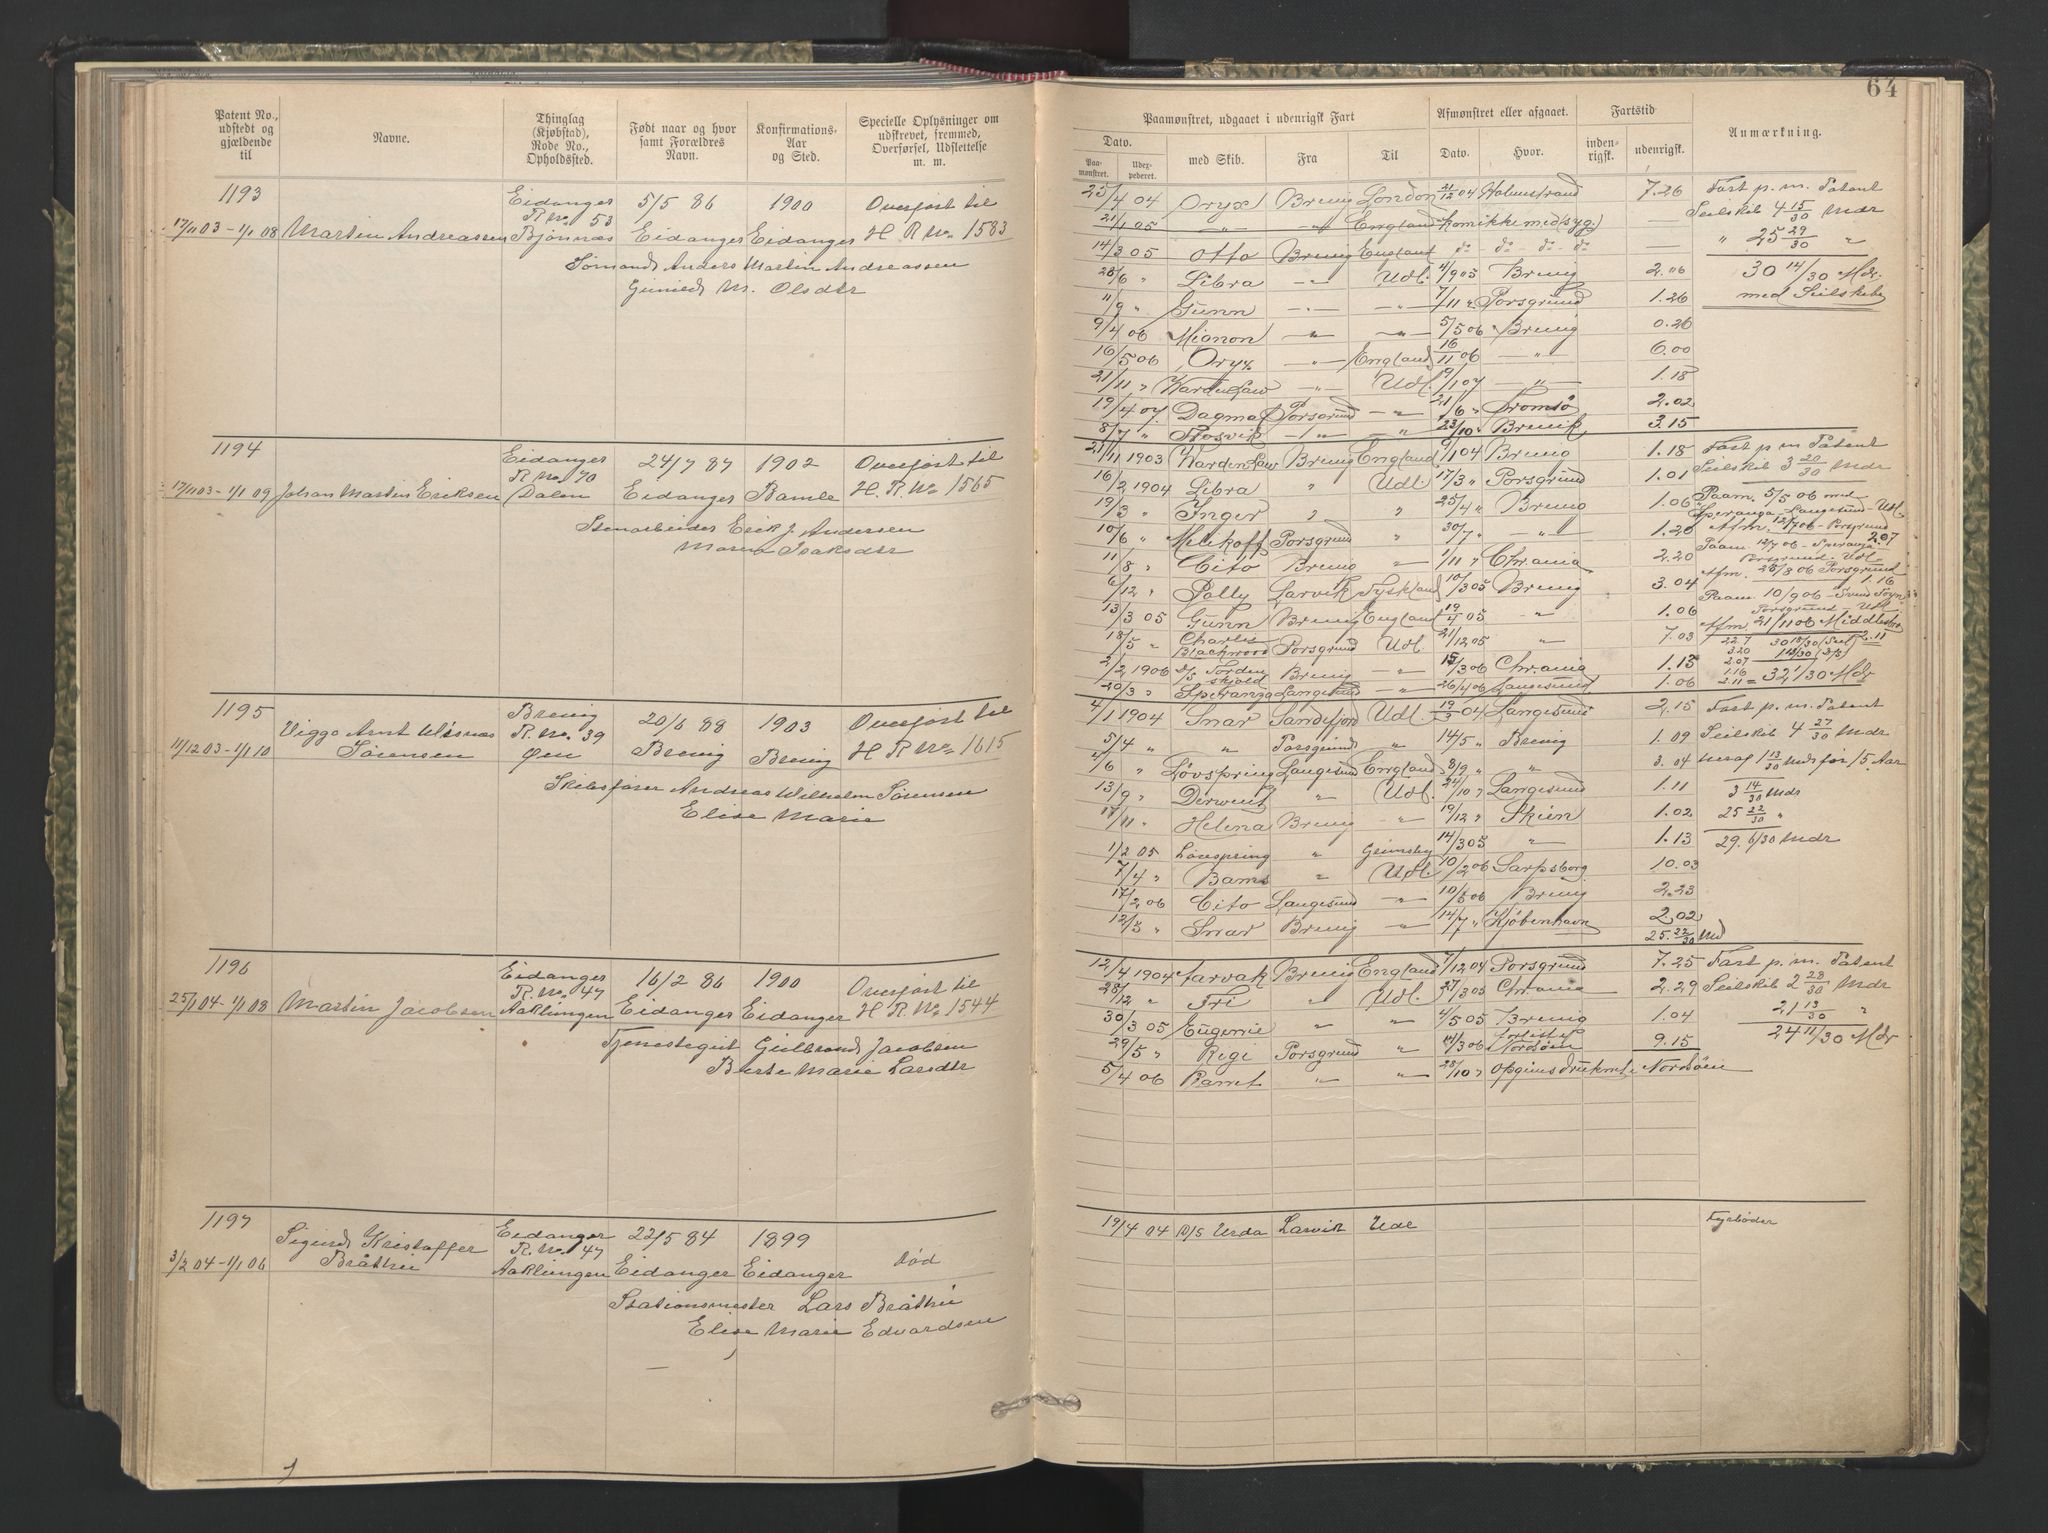 64
Patent No., udstedt og gjældende til
Navne.
Thinglag (Kjøbstad), Rode No., Opholdssted.
Født naar og hvor samt Forældres Navn.
Konfirmations-Aar og Sted.
Specielle Oplysninger om udskrevet, fremmed, Overførsel, Udslettelse m. m.
Paamønstret, udgaaet i udenrigsk Fart
Dato.
Paa-mønstret.
Udex-pederet.
med Skib.
Fra
Til
Afmønstret eller afgaaet.
Dato.
Hvor.
Fartstid
inden-rigsk.
udenrigsk.
Anmærkning.
1193
17/11 03 - 1/1 08 Martin Andreassen
Eidanger
R. No. 53
Bjønnes
5/5 86
Eidanger
1900
Eidanger
Overført til
H. R. No. 1583
Sømand Anders Martin Andreassen
Gunild M. Olsdtr
25/4 04 Oryx Brevig London 21/12 04 Holmstrand 7.26
21/1 05 " " England kom ikke med (syg) —
14/3 05 Otto Brevig England do do do do —
28/6 " Libra " Udl. 4/9 05 Brevig 2.06
11/9 " Gunn " " 7/11 " Porsgrund 1.26
9/4 06 Mignon " " 5/5 06 Brevig 0.26
16/5 06 Oryx " England 16/11 06 " 6.00
21/11 " Karden Law " Udl. 9/1 07 " 1.18
19/4 07 Dagmar Porsgrund " 21/6 " Tromsø 2.02
8/7 " Rosvik " " 23/10 " Brevik 3.15
Fart p. m. Patent
Seilskib 4 15/30 Mdr
" 25 29/30 "
30 14/30 Mdr.
med Seilskibe
1194
17/11 03 - 1/1 09 Johan Martin Eriksen
Eidanger
R. No. 70
Dalen
24/7 87
Eidanger
1902
Bamle
Overført til
H. R. No. 1565
Stenarbeider Erik J. Andersen
Maren Isaksdtr
21/11 1903 Karden Law Brevig England 9/1 04 Brevig 1.18
16/2 1904 Libra " Udl. 17/3 " Porsgrund 1.01
19/3 " Inger " " 25/4 " Brevig 1.06
10/6 " Melikoff Porsgrund " 30/7 " " 1.20
11/8 " Cito Brevig " 1/11 " Chrania 2.20
6/12 " Polly Larvik Tyskland 10/3 05 Brevig 3.04
13/3 05 Gunn Brevig England 19/4 05 " 1.06
18/5 " Charles Blackwood Porsgrund Udl. 21/12 05 " 7.03
2/2 1906 D/S Tordenskjold Brevig " 15/3 06 Chrania 1.13
20/3 " Speranza Langesund " 26/4 06 Langesund 1.06
Fart p. m Patent
Seilskib 3 20/30 Mdr
Paam. 5/5 06 med
Speranza - Langesund - Udl.
Afm. 12/7 06 - Porsgrund
2.07
Paam 12/7 06 - Speranza
Porsgrund - Udl
Afm. 28/8 06 Porsgrund
1.16
Paam 10/9 06 - Svend Foyn
Porsgrund - Udl.
Afm 21/11 06 Middlesbro
2.11
= 32 1/30 Mdr
1195
11/12 03 - 1/1 10 Viggo Arnt
Sørensen
Brevig
R. No. 39
Øen
20/6 88
Brevig
1903
Brevig
Overført til
H R No. 1615
Skibsfører Andreas Wilhelm Sørensen
Elise Marie
4/1 1904 Snar Sandefjord Udl. 19/3 04 Langesund 2.15
5/4 " " Porsgrund " 14/5 " Brevig 1.09
4/6 " Løvspring Langesund England 8/9 " " 3.04
13/9 " Derwent " Udl. 24/10 " Langesund 1.11
17/11 " Helena Brevig " 19/12 " Skien 1.02
1/2 05 Løvspring " Grimsby 14/3 05 " 1.13
7/4 " Bams " Udl. 10/2 06 Sarpsborg 10.03
17/2 06 Cito Langesund " 10/5 06 Brevig 2.23
12/5 " Snar Brevig " 14/7 " Kjøbenhavn 2.02
25.22/30 Md
Fart p. m. Patent
Seilskib 4 27/30 Mdr
heraf 1 13/30 Mdr før 15 Aar
3 14/30 Mdr
25 22/30 "
29. 6/30 Mdr
1196
25/1 04 - 1/1 08 Martin Jacobsen
Eidanger
R. No. 47
Aaklungen
16/2 86
Eidanger
1900
Eidanger
Overført til
H R. No. 1544
Tjenestegut Gulbrand Jacobsen
Berte Marie Larsdtr
12/4 1904 Aarvak Brevig England 7/12 04 Porsgrund 7.25
28/12 " Fri " Udl. 27/3 05 Chrania 2.29
30/3 05 Eugenie " " 4/5 05 Brevig 1.04
29/5 " Rigi Porsgrund " 14/3 06 Nordsøen 9.15
5/4 06 Ramt " " 28/10 " Nordsøen
Fart p. m. Patent
Seilskib 2 28/30 Mdr
21 13/30 "
24 11/30 Mdr
1197
3/2 04 - 1/1 06 Sigurd Kristoffer
Bråthe
Eidanger
R. No. 47
Aaklungen
22/5 84
Eidanger
1899
Eidanger
død
Stationsmester Lars Bråthe
Elise Marie Edvardsen
19/4 04 D/S Urda Larvik Udl
Fyrbøder